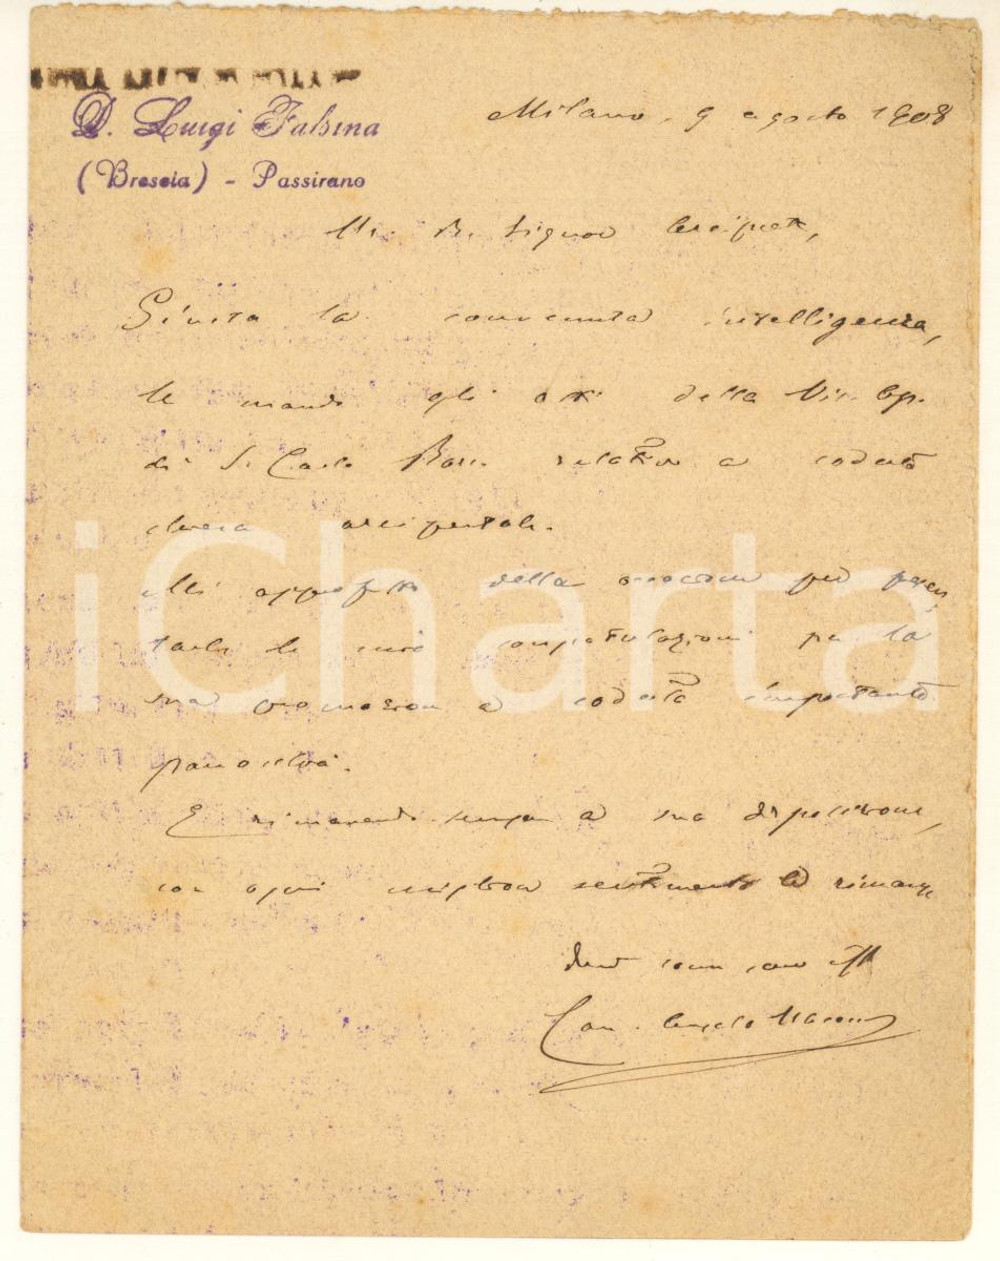 D. Luigi Falsina
(Brescia) - Passirano
Milano, 9 agosto 1908
M. R. Signor Arciprete,
Giusta la convenuta intelligenza,
le mando gli atti della Vis. Ap.
di S. Carlo Borr. relativi a codesta
chiesa arcipretale.
Mi approfitto della occasione per presen
tarle le mie congratulazioni per la
sua promozione a codesta importante
parrocchia.
E rimanendo sempre a sua disposizione,
con ogni miglior sentimento Le rimango
dev
Can. Angelo
iCharta